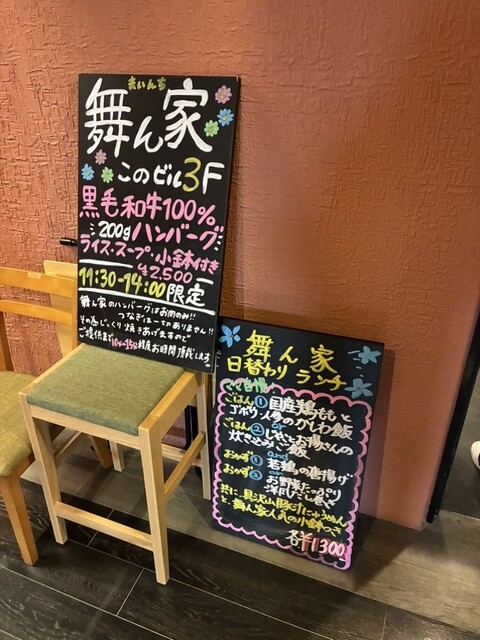 まいんち
舞ん家
このビル3F
黒毛和牛100%
200gハンバーグ
ライス・スープ・小鉢付き
¥2,500
11:30-14:00限定
舞ん家のハンバーグはお肉のみ!!
つなぎは一切ありません!!
その為じっくり焼きあげますので
ご提供まで10分~15分程度お時間頂戴します
舞ん家
日替わりランチ
ごはん① 国産鶏ももと
ゴボウ・人参のかしわ飯
or
ごはん②
炊き込みご飯
and
おかず① 若鶏の唐揚げ
or
おかず② お野菜たっぷり
共に、具沢山豚汁
と、舞ん家人気の小鉢つき
各¥1300